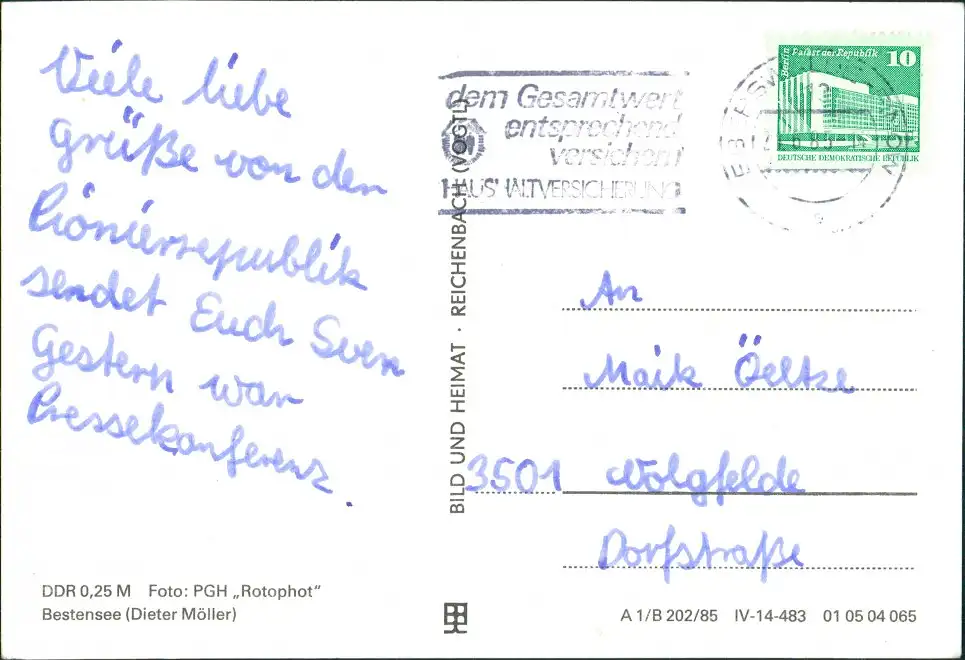 Viele liebe
Grüße von der
Pionierrepublik
sendet Euch Sven
Gestern war
Pressekonferenz.
DDR 0,25 M Foto: PGH „Rotophot“
Bestensee (Dieter Möller)
BILD UND HEIMAT · REICHENBACH (VOGTL)
dem Gesamtwert
entsprechend
versichern
HAUSHALTVERSICHERUNG
Berlin Palast der Republik 10
DEUTSCHE DEMOKRATISCHE REPUBLIK
An
Maik Öeltze
3501 Wolgfelde
Dorfstraße
A 1/B 202/85 IV-14-483 01 05 04 065